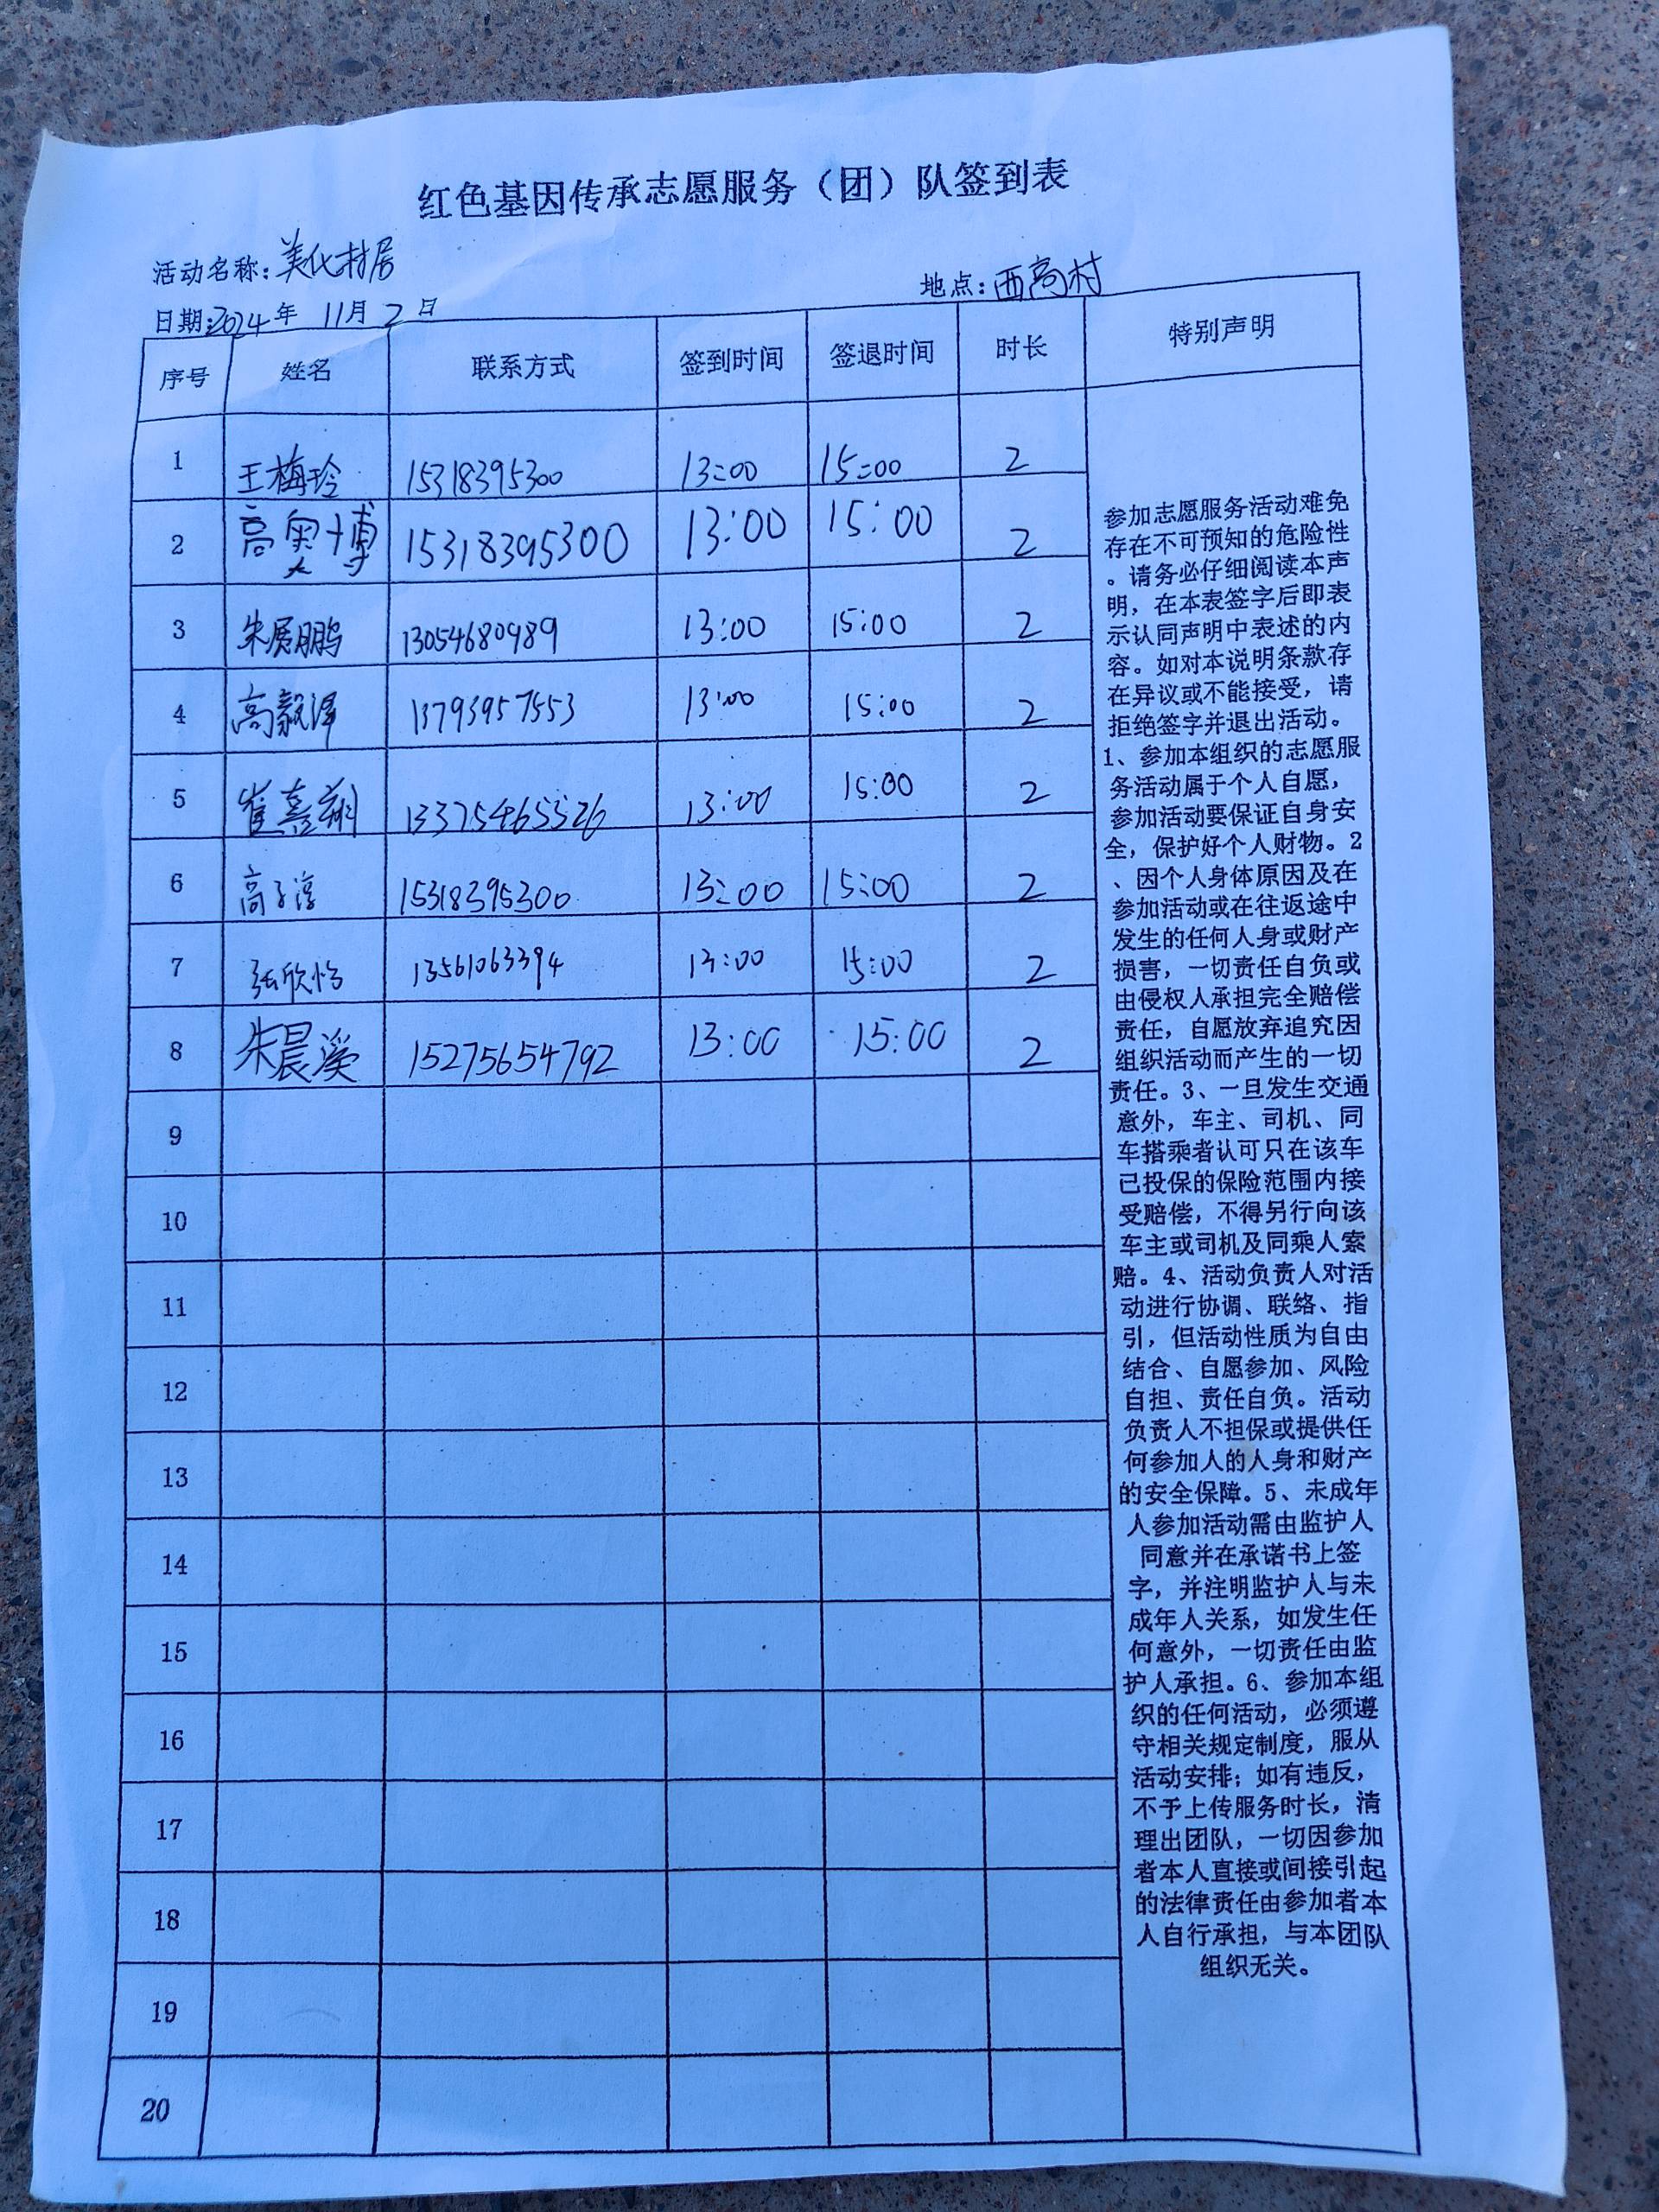 红色基因传承志愿服务（团）队签到表
活动名称：美化村居
地点：西高村
日期：2024年 11月 2日
序号 姓名 联系方式 签到时间 签退时间 时长 特别声明
1 王梅玲 15318395300 13:00 15:00 2
2 高奥博 15318395300 13:00 15:00 2
3 朱展鹏 13054680989 13:00 15:00 2
4 高毅泽 13793957553 13:00 15:00 2
5 崔嘉翔 13375465526 13:00 15:00 2
6 高子淳 15318395300 13:00 15:00 2
7 张欣怡 13561063394 13:00 15:00 2
8 朱晨溪 15275654792 13:00 15:00 2
9
10
11
12
13
14
15
16
17
18
19
20
参加志愿服务活动难免
存在不可预知的危险性
。请务必仔细阅读本声
明，在本表签字后即表
示认同声明中表述的内
容。如对本说明条款存
在异议或不能接受，请
拒绝签字并退出活动。
1、参加本组织的志愿服
务活动属于个人自愿，
参加活动要保证自身安
全，保护好个人财物。2
、因个人身体原因及在
参加活动或在往返途中
发生的任何人身或财产
损害，一切责任自负或
由侵权人承担完全赔偿
责任，自愿放弃追究因
组织活动而产生的一切
责任。3、一旦发生交通
意外，车主、司机、同
车搭乘者认可只在该车
已投保的保险范围内接
受赔偿，不得另行向该
车主或司机及同乘人索
赔。4、活动负责人对活
动进行协调、联络、指
引，但活动性质为自由
结合、自愿参加、风险
自担、责任自负。活动
负责人不担保或提供任
何参加人的人身和财产
的安全保障。5、未成年
人参加活动需由监护人
同意并在承诺书上签
字，并注明监护人与未
成年人关系，如发生任
何意外，一切责任由监
护人承担。6、参加本组
织的任何活动，必须遵
守相关规定制度，服从
活动安排；如有违反，
不予上传服务时长，清
理出团队，一切因参加
者本人直接或间接引起
的法律责任由参加者本
人自行承担，与本团队
组织无关。